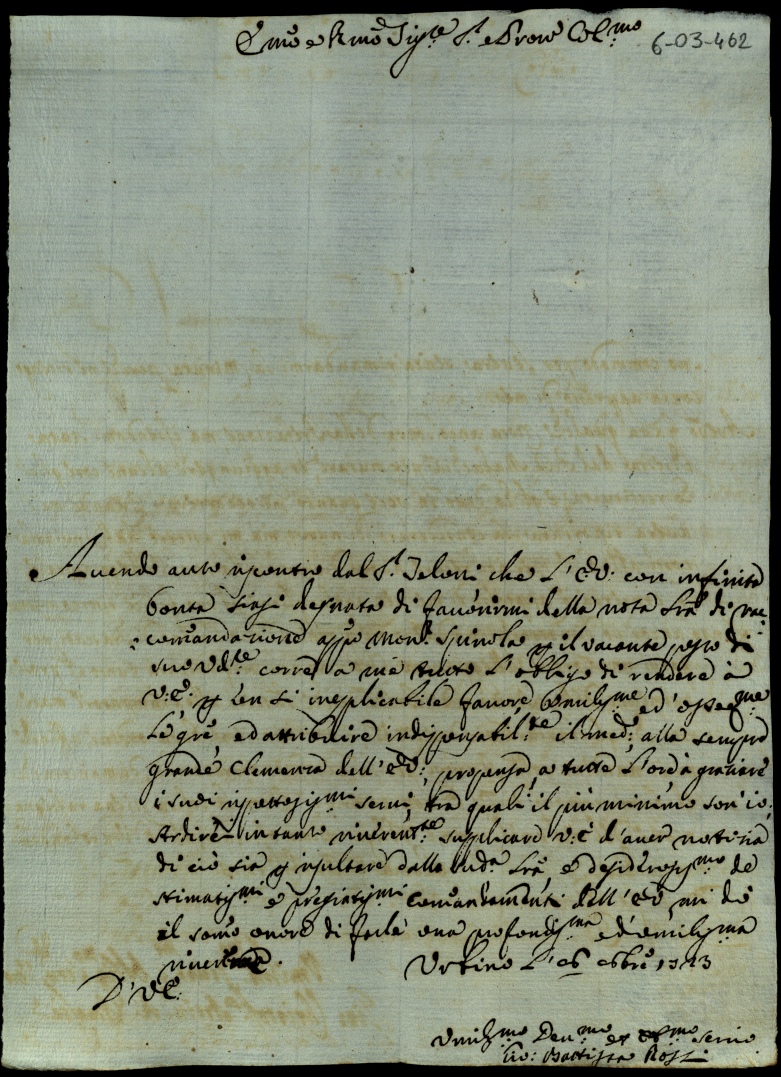 Emo e Rmo Sigre S.r e Prone Col.mo
6-03-462
Auendo auto riscontro dal S.r Teloni che l'E.V. con infinita
bontà siasi degnata di fauorirmi della nota lra di rac
comandazione appo Mons.r Spinola p il vacante posto di
suo Ud.te corre a me tutto l'obbligo di rendere à
V.E. p un sì inesplicabile fauore umiliss.me ed osseq.me
le gre ed attribuire indispensabil.te il med.o alla sempre
grande Clemenza dell'E.V. propensa a tutte l'ore à graziare
i suoi rispettosiss.mi serui, tra quali il più minimo son io.
Ardirei intanto riuerent.te supplicare V.E. d'auer notizia
di ciò sia p risultare dalla sud.a lra, e desiderosiss.mo de
stimatiss.mi e pregiatiss.mi comandamenti dell'E.V. mi dò
il sommo onore di farle una profondiss.ma ed umiliss.ma
riuerenza. Urbino l' 6 1713
D' V.E.
Umiliss.mo Deu.mo et Obl.mo seruo
Gio: Battista Rossi